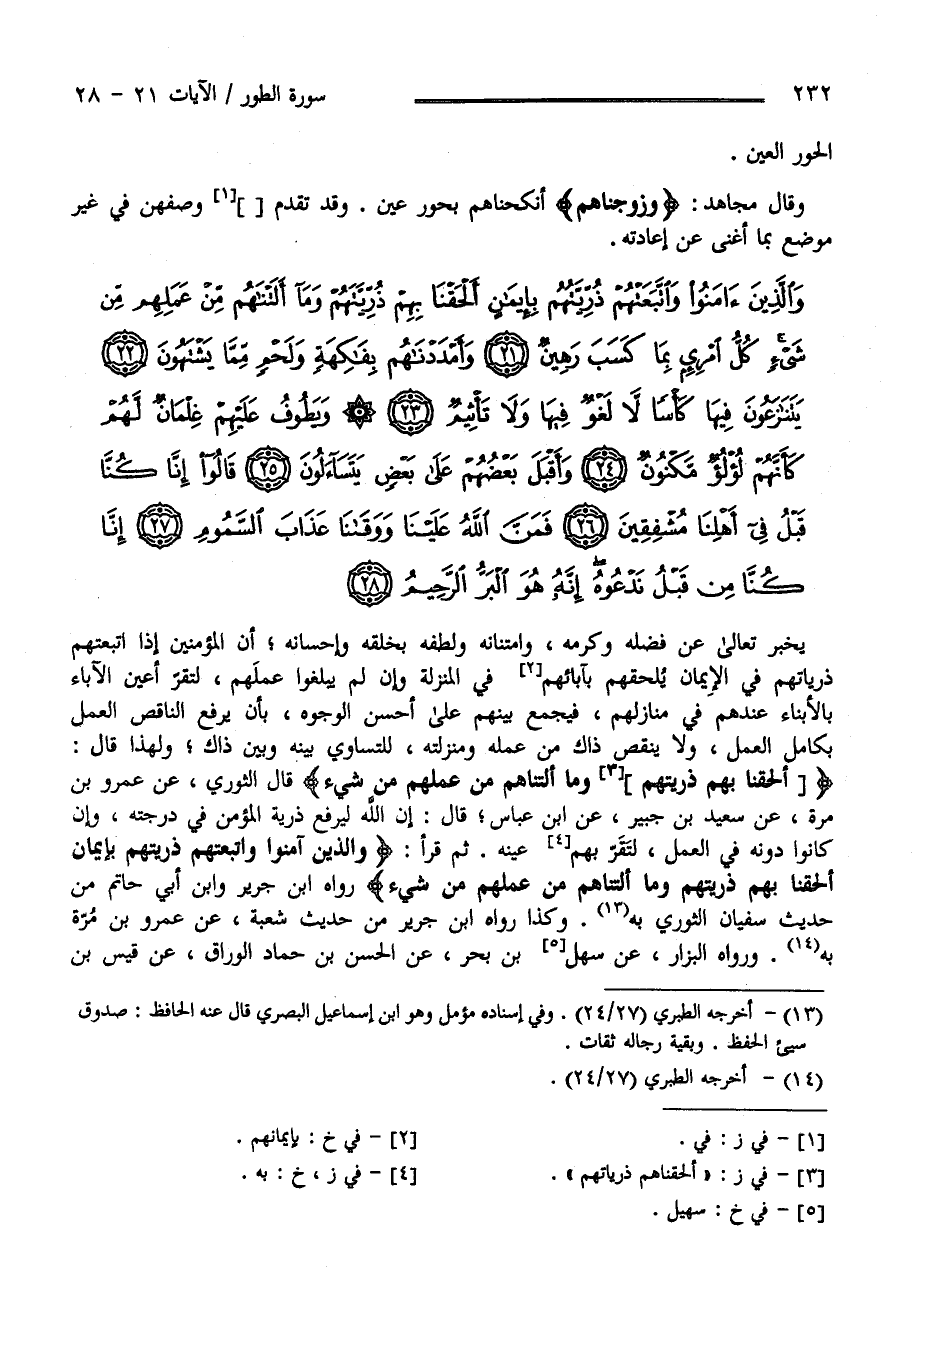 ٢٣٢ سورة الطور / الآيات ٢١ - ٢٨
الحور العين .
وقال مجاهد : ﴿ وزوجناهم ﴾ أنكحناهم بحور عين . وقد تقدم [ ][١] وصفهن في غير
موضع بما أغنى عن إعادته .
وَٱلَّذِينَ ءَامَنُوا۟ وَٱتَّبَعَتْهُمْ ذُرِّيَّتُهُم بِإِيمَٰنٍ أَلْحَقْنَا بِهِمْ ذُرِّيَّتَهُمْ وَمَآ أَلَتْنَٰهُم مِّنْ عَمَلِهِم مِّن
شَىْءٍ ۚ كُلُّ ٱمْرِئٍۭ بِمَا كَسَبَ رَهِينٌ ﴿٢١﴾ وَأَمْدَدْنَٰهُم بِفَٰكِهَةٍ وَلَحْمٍ مِّمَّا يَشْتَهُونَ ﴿٢٢﴾
يَتَنَٰزَعُونَ فِيهَا كَأْسًا لَّا لَغْوٌ فِيهَا وَلَا تَأْثِيمٌ ﴿٢٣﴾ ۞ وَيَطُوفُ عَلَيْهِمْ غِلْمَانٌ لَّهُمْ
كَأَنَّهُمْ لُؤْلُؤٌ مَّكْنُونٌ ﴿٢٤﴾ وَأَقْبَلَ بَعْضُهُمْ عَلَىٰ بَعْضٍ يَتَسَآءَلُونَ ﴿٢٥﴾ قَالُوٓا۟ إِنَّا كُنَّا
قَبْلُ فِىٓ أَهْلِنَا مُشْفِقِينَ ﴿٢٦﴾ فَمَنَّ ٱللَّهُ عَلَيْنَا وَوَقَىٰنَا عَذَابَ ٱلسَّمُومِ ﴿٢٧﴾ إِنَّا
كُنَّا مِن قَبْلُ نَدْعُوهُ ۖ إِنَّهُۥ هُوَ ٱلْبَرُّ ٱلرَّحِيمُ ﴿٢٨﴾
يخبر تعالىٰ عن فضله وكرمه ، وامتنانه ولطفه بخلقه وإحسانه ؛ أن المؤمنين إذا اتبعتهم
ذرياتهم في الإيمان يُلحقهم بآبائهم[٢] في المنزلة وإن لم يبلغوا عملَهم ، لتقرّ أعين الآباء
بالأبناء عندهم في منازلهم ، فيجمع بينهم علىٰ أحسن الوجوه ، بأن يرفع الناقص العمل
بكامل العمل ، ولا ينقص ذاك من عمله ومنزلته ، للتساوي بينه وبين ذاك ؛ ولهذا قال :
﴿ [ ألحقنا بهم ذريتهم ][٣] وما ألتناهم من عملهم من شيء ﴾ قال الثوري ، عن عمرو بن
مرة ، عن سعيد بن جبير ، عن ابن عباس؛ قال : إن اللَّه ليرفع ذرية المؤمن في درجته ، وإن
كانوا دونه في العمل ، لتَقَرّ بهم[٤] عينه . ثم قرأ : ﴿ والذين آمنوا واتبعتهم ذريتهم بإيمان
ألحقنا بهم ذريتهم وما ألتناهم من عملهم من شيء ﴾ رواه ابن جرير وابن أبي حاتم من
حديث سفيان الثوري به(١٣) . وكذا رواه ابن جرير من حديث شعبة ، عن عمرو بن مُرّة
به(١٤) . ورواه البزار ، عن سهل[٥] بن بحر ، عن الحسن بن حماد الوراق ، عن قيس بن
(١٣) - أخرجه الطبري (٢٤/٢٧) . وفي إسناده مؤمل وهو ابن إسماعيل البصري قال عنه الحافظ : صدوق
سيئ الحفظ . وبقية رجاله ثقات .
(١٤) - أخرجه الطبري (٢٤/٢٧) .
[١] - في ز : في . [٢] - في خ : بإيمانهم .
[٣] - في ز : « ألحقناهم ذرياتهم » . [٤] - في ز ، خ : به .
[٥] - في خ : سهيل .